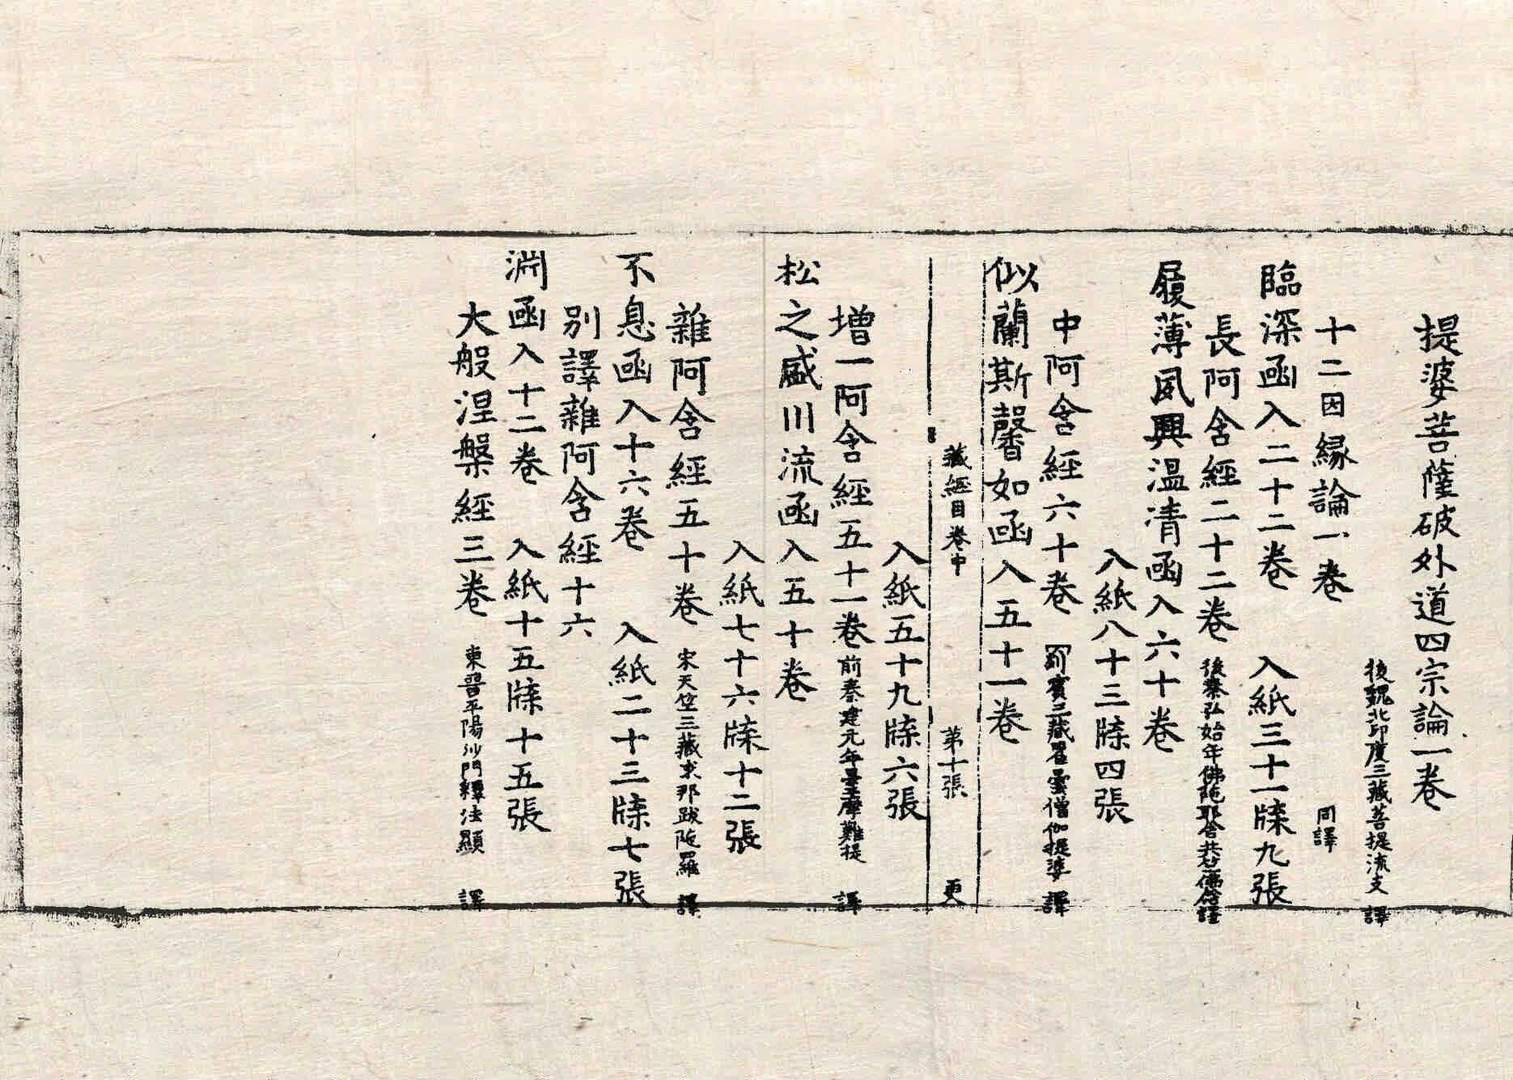 提婆菩薩破外道四宗論一卷
後魏北印度三藏菩提流支 譯
十二因緣論一卷 同譯
臨深函入二十二卷 入紙三十一牒九張
長阿含經二十二卷 後秦弘始年佛陁耶舍共竺佛念譯
履薄夙興溫凊函入六十卷
入紙八十三牒四張
中阿含經六十卷 罽賓三藏瞿曇僧伽提婆 譯
似蘭斯馨如函入五十一卷
藏經目卷中 第十張 更
入紙五十九牒六張
增一阿含經五十一卷 前秦建元年曇摩難提 譯
松之盛川流函入五十卷
入紙七十六牒十二張
雜阿含經五十卷 宋天竺三藏求那跋陁羅 譯
不息函入十六卷 入紙二十三牒七張
別譯雜阿含經十六
淵函入十二卷 入紙十五牒十五張
大般涅槃經三卷 東晉平陽沙門釋法顯 譯